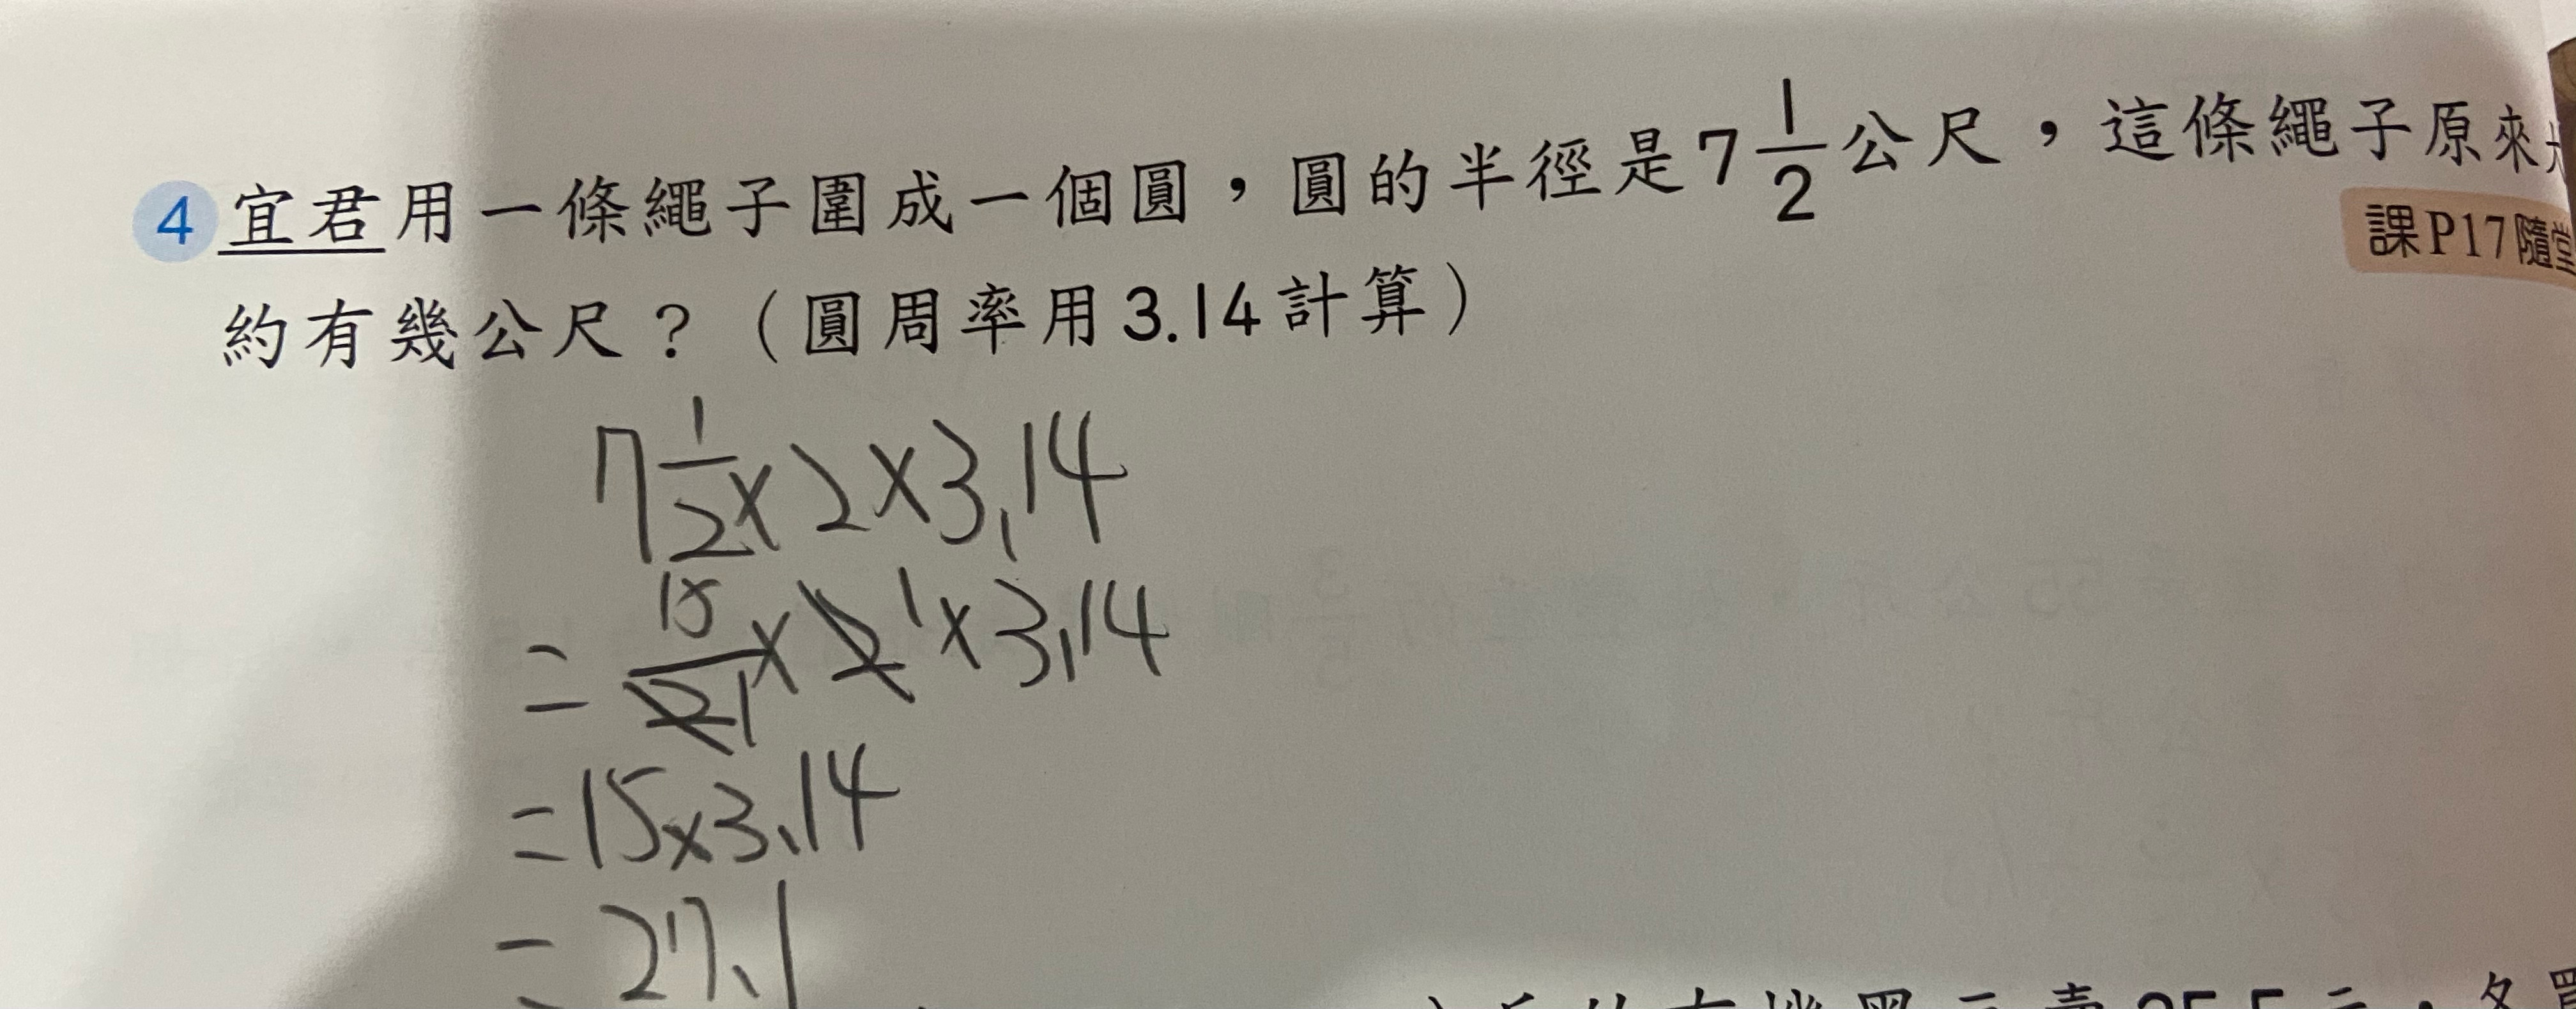 4 宜君用一條繩子圍成一個圓，圓的半徑是7 1/2公尺，這條繩子原來
課P17隨堂
約有幾公尺？（圓周率用3.14計算）
7 1/2×2×3.14
=15/2 1×2 1×3.14
=15×3.14
=27.1